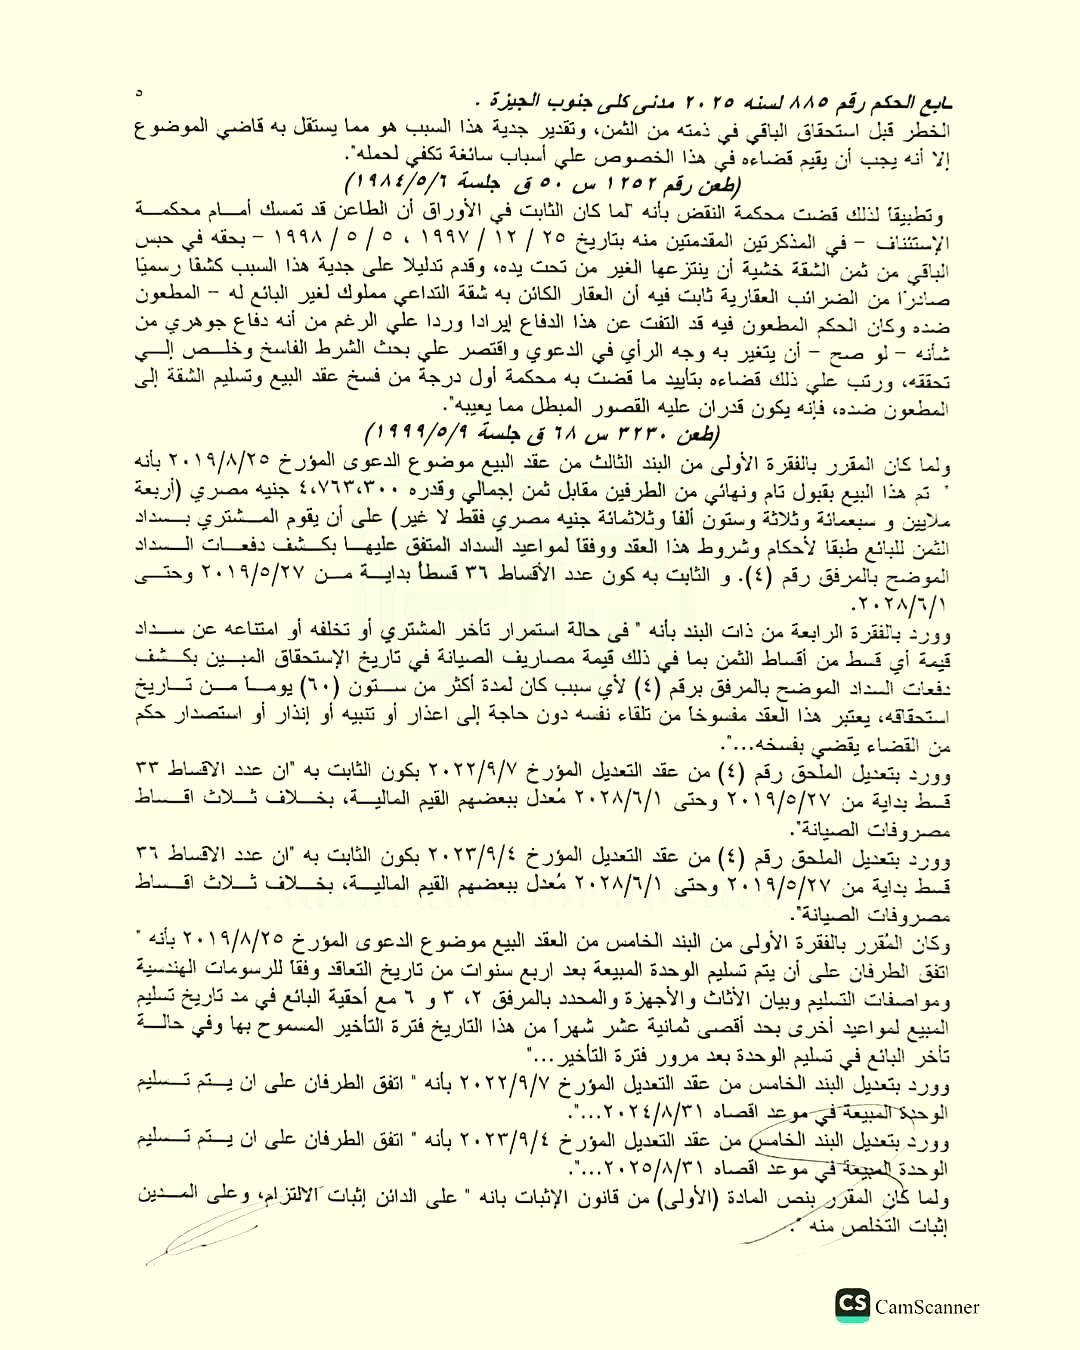 ٥
تابع الحكم رقم ٨٨٥ لسنه ٢٠٢٥ مدنى كلى جنوب الجيزة .
الخطر قبل استحقاق الباقي في ذمته من الثمن، وتقدير جدية هذا السبب هو مما يستقل به قاضي الموضوع
إلا أنه يجب أن يقيم قضاءه في هذا الخصوص علي أسباب سائغة تكفي لحمله".
(طعن رقم ١٢٥٢ س ٥٠ ق جلسة ١٩٨٤/٥/٦)
وتطبيقاً لذلك قضت محكمة النقض بأنه "لما كان الثابت في الأوراق أن الطاعن قد تمسك أمـــام محكمـــة
الإستئناف – في المذكرتين المقدمتين منه بتاريخ ٢٥ / ١٢ / ١٩٩٧ ، ٥ / ٥ / ١٩٩٨ – بحقه في حبس
الباقي من ثمن الشقة خشية أن ينتزعها الغير من تحت يده، وقدم تدليلا على جدية هذا السبب كشفا رسميًا
صادرًا من الضرائب العقارية ثابت فيه أن العقار الكائن به شقة التداعي مملوك لغير البائع له – المطعون
ضده وكان الحكم المطعون فيه قد التفت عن هذا الدفاع إيرادا وردا علي الرغم من أنه دفاع جوهري من
شأنه – لو صح – أن يتغير به وجه الرأي في الدعوي واقتصر علي بحث الشرط الفاسخ وخلـــص إلـــي
تحققه، ورتب علي ذلك قضاءه بتأييد ما قضت به محكمة أول درجة من فسخ عقد البيع وتسليم الشقة إلى
المطعون ضده، فإنه يكون قدران عليه القصور المبطل مما يعيبه".
(طعن ٣٢٣٠ س ٦٨ ق جلسة ١٩٩٩/٥/٩)
ولما كان المقرر بالفقرة الأولى من البند الثالث من عقد البيع موضوع الدعوى المؤرخ ٢٠١٩/٨/٢٥ بأنه
" تم هذا البيع بقبول تام ونهائي من الطرفين مقابل ثمن إجمالي وقدره ٤،٧٦٣،٣٠٠ جنيه مصري (أربعة
ملايين و سبعمائة وثلاثة وستون ألفاً وثلاثمائة جنيه مصري فقط لا غير) على أن يقوم المـــشتري بـــسداد
الثمن للبائع طبقا لأحكام وشروط هذا العقد ووفقاً لمواعيد السداد المتفق عليهـــا بكـــشف دفعـــات الـــسداد
الموضح بالمرفق رقم (٤). و الثابت به كون عدد الأقساط ٣٦ قسطاً بدايـــة مـــن ٢٠١٩/٥/٢٧ وحتـــى
٢٠٢٨/٦/١.
وورد بالفقرة الرابعة من ذات البند بأنه " فى حالة استمرار تأخر المشتري أو تخلفه أو امتناعه عن ســـداد
قيمة أي قسط من أقساط الثمن بما في ذلك قيمة مصاريف الصيانة في تاريخ الإستحقاق المبـــين بكـــشف
دفعات السداد الموضح بالمرفق برقم (٤) لأي سبب كان لمدة أكثر من ســـتون (٦٠) يومـــاً مـــن تـــاريخ
استحقاقه، يعتبر هذا العقد مفسوخاً من تلقاء نفسه دون حاجة إلى اعذار أو تنبيه أو إنذار أو استصدار حكم
من القضاء يقضي بفسخه...".
وورد بتعديل الملحق رقم (٤) من عقد التعديل المؤرخ ٢٠٢٢/٩/٧ بكون الثابت به "ان عدد الاقساط ٣٣
قسط بداية من ٢٠١٩/٥/٢٧ وحتى ٢٠٢٨/٦/١ مُعدل ببعضهم القيم الماليـــة، بخـــلاف ثـــلاث اقـــساط
مصروفات الصيانة".
وورد بتعديل الملحق رقم (٤) من عقد التعديل المؤرخ ٢٠٢٣/٩/٤ بكون الثابت به "ان عدد الاقساط ٣٦
قسط بداية من ٢٠١٩/٥/٢٧ وحتى ٢٠٢٨/٦/١ مُعدل ببعضهم القيم الماليـــة، بخـــلاف ثـــلاث اقـــساط
مصروفات الصيانة".
وكان المُقرر بالفقرة الأولى من البند الخامس من العقد البيع موضوع الدعوى المؤرخ ٢٠١٩/٨/٢٥ بأنه "
اتفق الطرفان على أن يتم تسليم الوحدة المبيعة بعد اربع سنوات من تاريخ التعاقد وفقاً للرسومات الهندسية
ومواصفات التسليم وبيان الأثاث والأجهزة والمحدد بالمرفق ٢، ٣ و ٦ مع أحقية البائع في مد تاريخ تسليم
المبيع لمواعيد أخرى بحد أقصى ثمانية عشر شهراً من هذا التاريخ فترة التأخير المسموح بها وفي حالـــة
تأخر البائع في تسليم الوحدة بعد مرور فترة التأخير..."
وورد بتعديل البند الخامس من عقد التعديل المؤرخ ٢٠٢٢/٩/٧ بأنه " اتفق الطرفان على ان يـــتم تـــسليم
الوحدة المبيعة في موعد اقصاه ٢٠٢٤/٨/٣١...".
وورد بتعديل البند الخامس من عقد التعديل المؤرخ ٢٠٢٣/٩/٤ بأنه " اتفق الطرفان على ان يـــتم تـــسليم
الوحدة المبيعة في موعد اقصاه ٢٠٢٥/٨/٣١...".
ولما كان المقرر بنص المادة (الأولى) من قانون الإثبات بانه " على الدائن إثبات الالتزام، وعلى المـــدين
إثبات التخلص منه ".
CS CamScanner